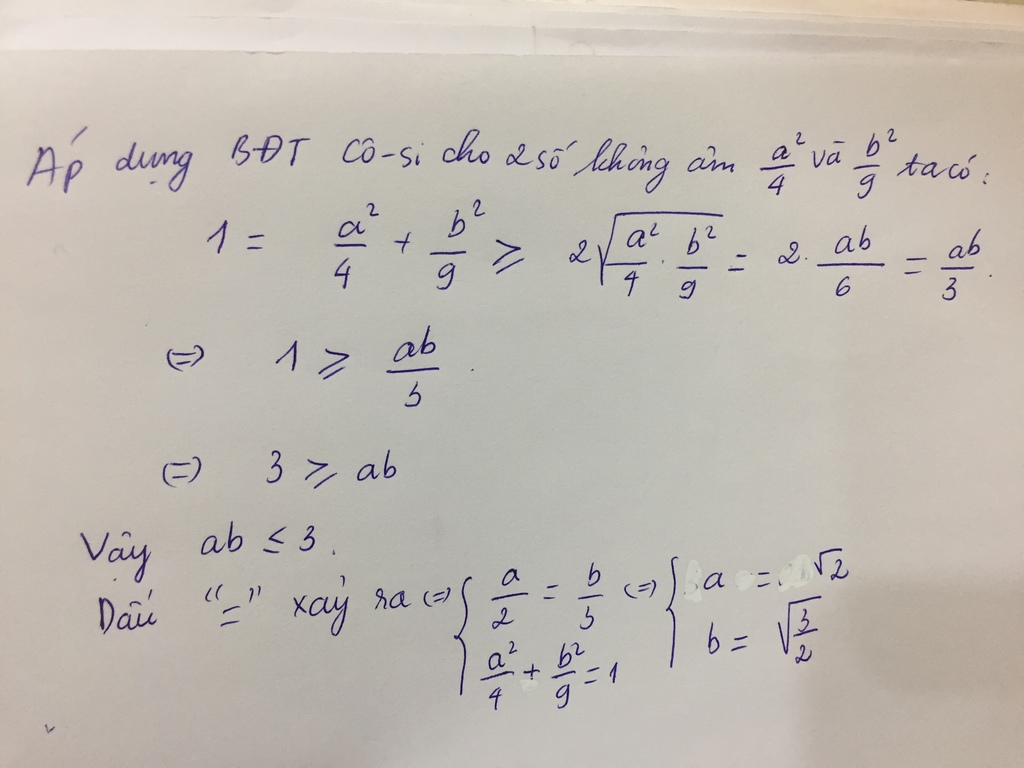 Áp dụng BĐT Cô-si cho 2 số không âm a²/4 và b²/9 ta có:
1 = a²/4 + b²/9 ≥ 2√(a²/4 · b²/9) = 2. ab/6 = ab/3.
(=) 1 ≥ ab/3.
(=) 3 ≥ ab
Vậy ab ≤ 3.
Dấu "=" xảy ra (=) { a/2 = b/3 (=) { a = √2
a²/4 + b²/9 = 1 b = √(3/2)